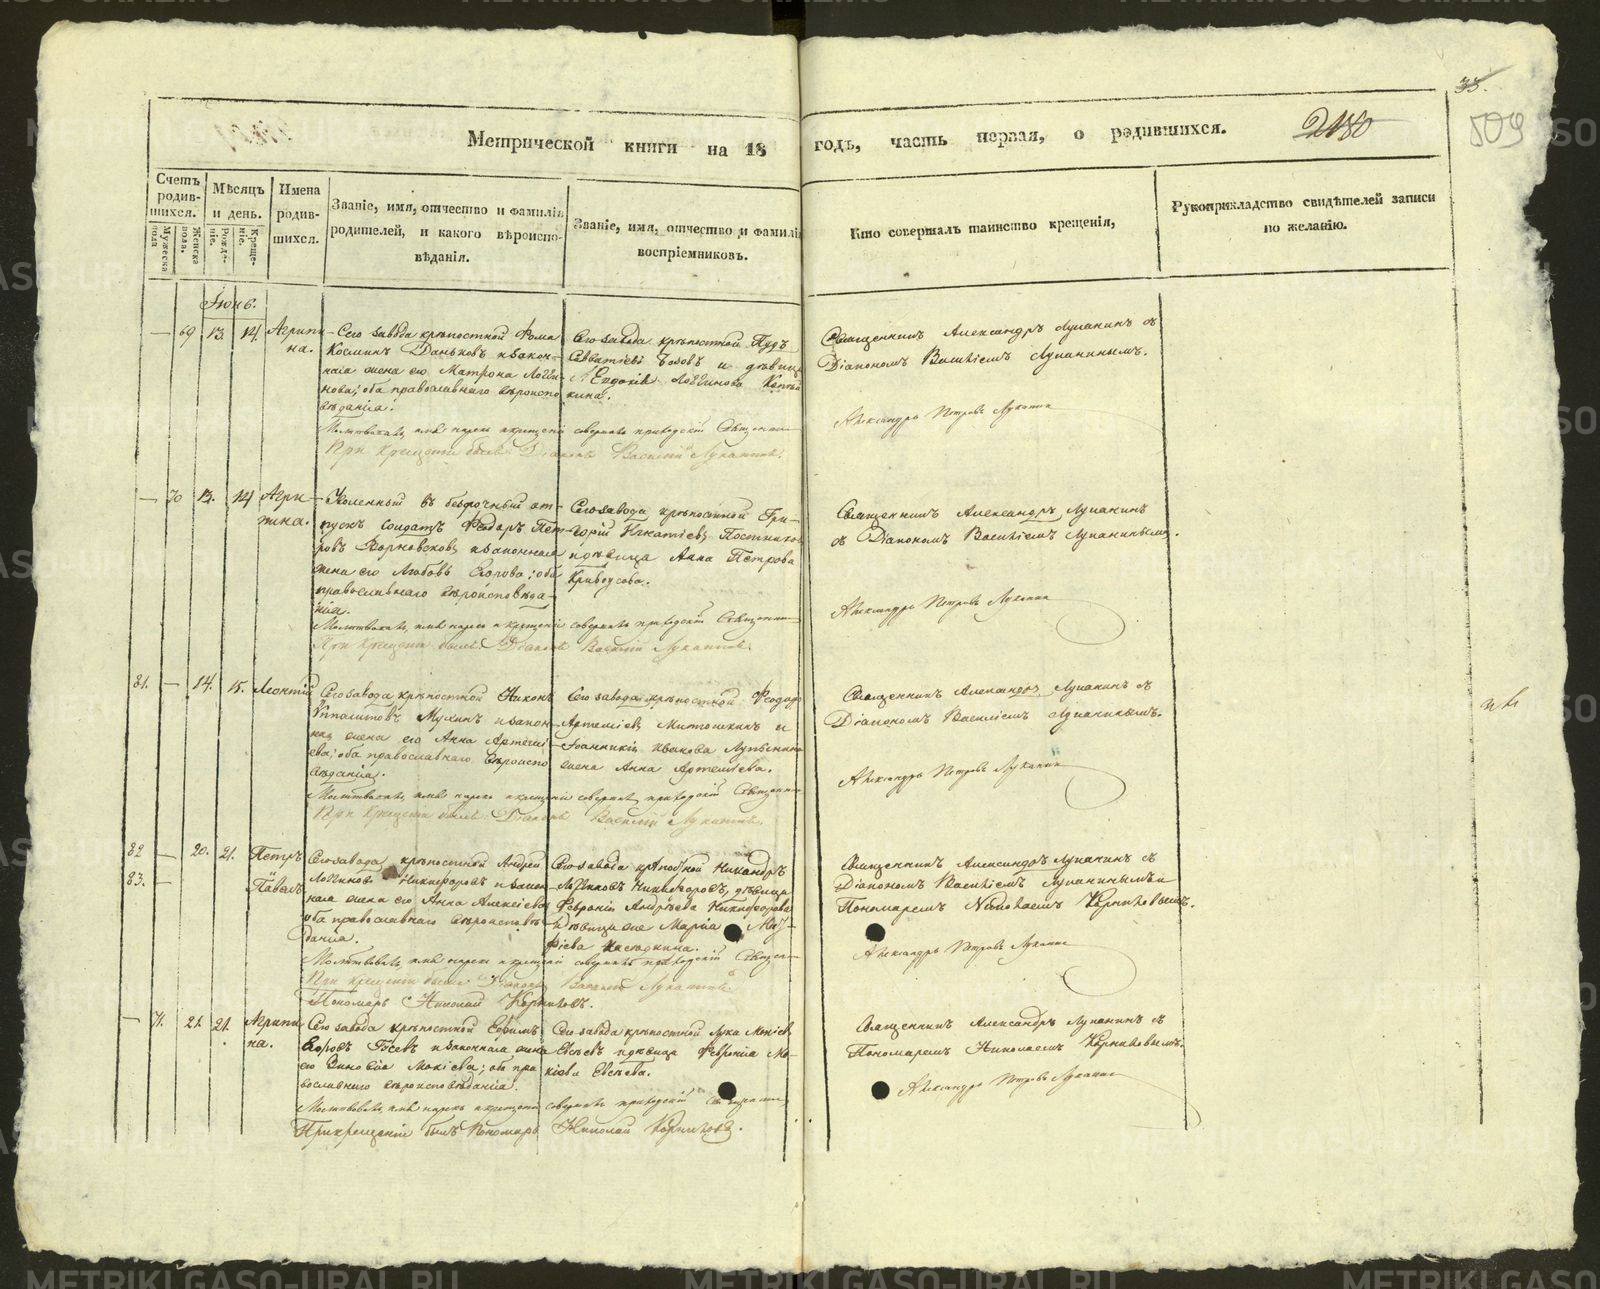 33.
509
2180
Метрической книги на 18 годъ, часть первая, о родившихся.
Счетъ родившихся.
Мужеска пола
Женска пола.
Мѣсяцъ и день.
Рожденіе.
Крещеніе.
Имена родившихся.
Званіе, имя, отчество и фамилія родителей, и какого вѣроисповѣданія.
Званіе, имя, отчество и фамилія воспріемниковъ.
Кто совершалъ таинство крещенія,
Рукоприкладство свидѣтелей записи по желанію.
Іюнь.
— 69 13. 14. Агрипина.
Сего завода крѣпостной Фома
Косминъ Даньковъ и закон-
ная жена его Матрона Логги-
нова; оба православнаго вѣроиспо-
вѣданія.
Сего завода крѣпостной Пудъ
Савватіевъ и дѣвица
Евдокія Логгинова
кина.
Священникъ Александръ Луканинъ съ
Діакономъ Василіемъ Луканинымъ.
Молитвовалъ, имя нарекъ и крещеніе совершалъ приходскій Священникъ
Александръ Петровъ Луканинъ
При крещеніи былъ Діаконъ Василій Луканинъ.
— 70 13. 14 Агрипина.
Уволенный въ безсрочный от-
пускъ солдатъ Федоръ Пет-
ровъ и законная
жена его Любовь Егорова; оба
православнаго вѣроисповѣда-
нія.
Сего завода крѣпостной Гри-
горій Игнатіевъ Постников
и дѣвица Анна Петрова
Кривоусова.
Священникъ Александръ Луканинъ
съ Діакономъ Василіемъ Луканинымъ.
Молитвовалъ, имя нарекъ и крещеніе совершалъ приходскій Священникъ
Александръ Петровъ Луканинъ
При крещеніи былъ Діаконъ Василій Луканинъ.
81. — 14. 15. Леонтій
Сего завода крѣпостной Никонъ
Ипполитовъ Мухинъ и закон-
ная жена его Анна Артеміе-
ва; оба православнаго вѣроиспо-
вѣданія.
Сего завода крѣпостной Ѳеодоръ
Артеміевъ Митрошкинъ и
Іоанникія Иванова
жена Анна Артеміева.
Священникъ Александръ Луканинъ съ
Діакономъ Василіемъ Луканинымъ.
Молитвовалъ, имя нарекъ и крещеніе совершалъ приходскій Священникъ
Александръ Петровъ Луканинъ
При крещеніи былъ Діаконъ Василій Луканинъ.
82 — 20. 21. Петръ
83. — Павелъ
Сего завода крѣпостной Андрей
Логиновъ Никифоровъ и закон-
ная жена его Анна Алексіева
оба православнаго вѣроисповѣ-
данія.
Сего завода крѣпостной Никандръ
Логиновъ Никифоровъ, дѣвица
Февронія Андрѣева Никифорова
дѣвица же Марія
фіева
Священникъ Александръ Луканинъ съ
Діакономъ Василіемъ Луканинымъ и
Пономаремъ Николаемъ Корниловымъ.
Молитвовалъ, имя нарекъ и крещеніе совершалъ приходскій Священ-
Александръ Петровъ Луканинъ
При крещеніи были Діаконъ Василій Луканинъ.
Пономарь Николай Корниловъ.
— 71. 21. 21. Агрипина.
Сего завода крѣпостной Ефимъ
Егоровъ и законная жена
его Мокіева; оба пра-
вославнаго вѣроисповѣданія.
Сего завода крѣпостной Лука Мокіев
Евсѣевъ и дѣвица Февронія Мо-
кіева Евсѣева.
Священникъ Александръ Луканинъ съ
Пономаремъ Николаемъ Корниловымъ.
Молитвовалъ, имя нарекъ и крещеніе совершалъ приходскій Священник
Александръ Петровъ Луканинъ
При крещеніи былъ Пономарь Николай Корниловъ.
METRIKI.GASO-URAL.RU